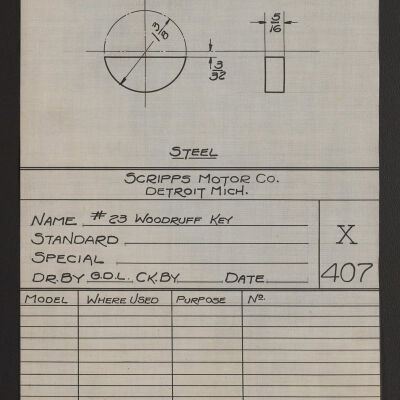 3/8
5/16
3/32
STEEL
SCRIPPS MOTOR CO.
DETROIT MICH.
NAME #23 WOODRUFF KEY
STANDARD
SPECIAL
DR. BY G.D.L. CK. BY DATE
X
407
MODEL WHERE USED PURPOSE No.